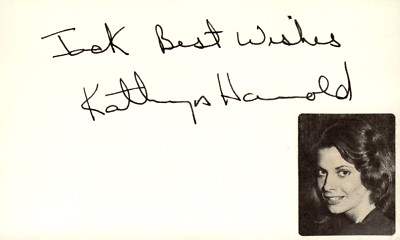 Jack Best Wishes
Kathryn Harrold